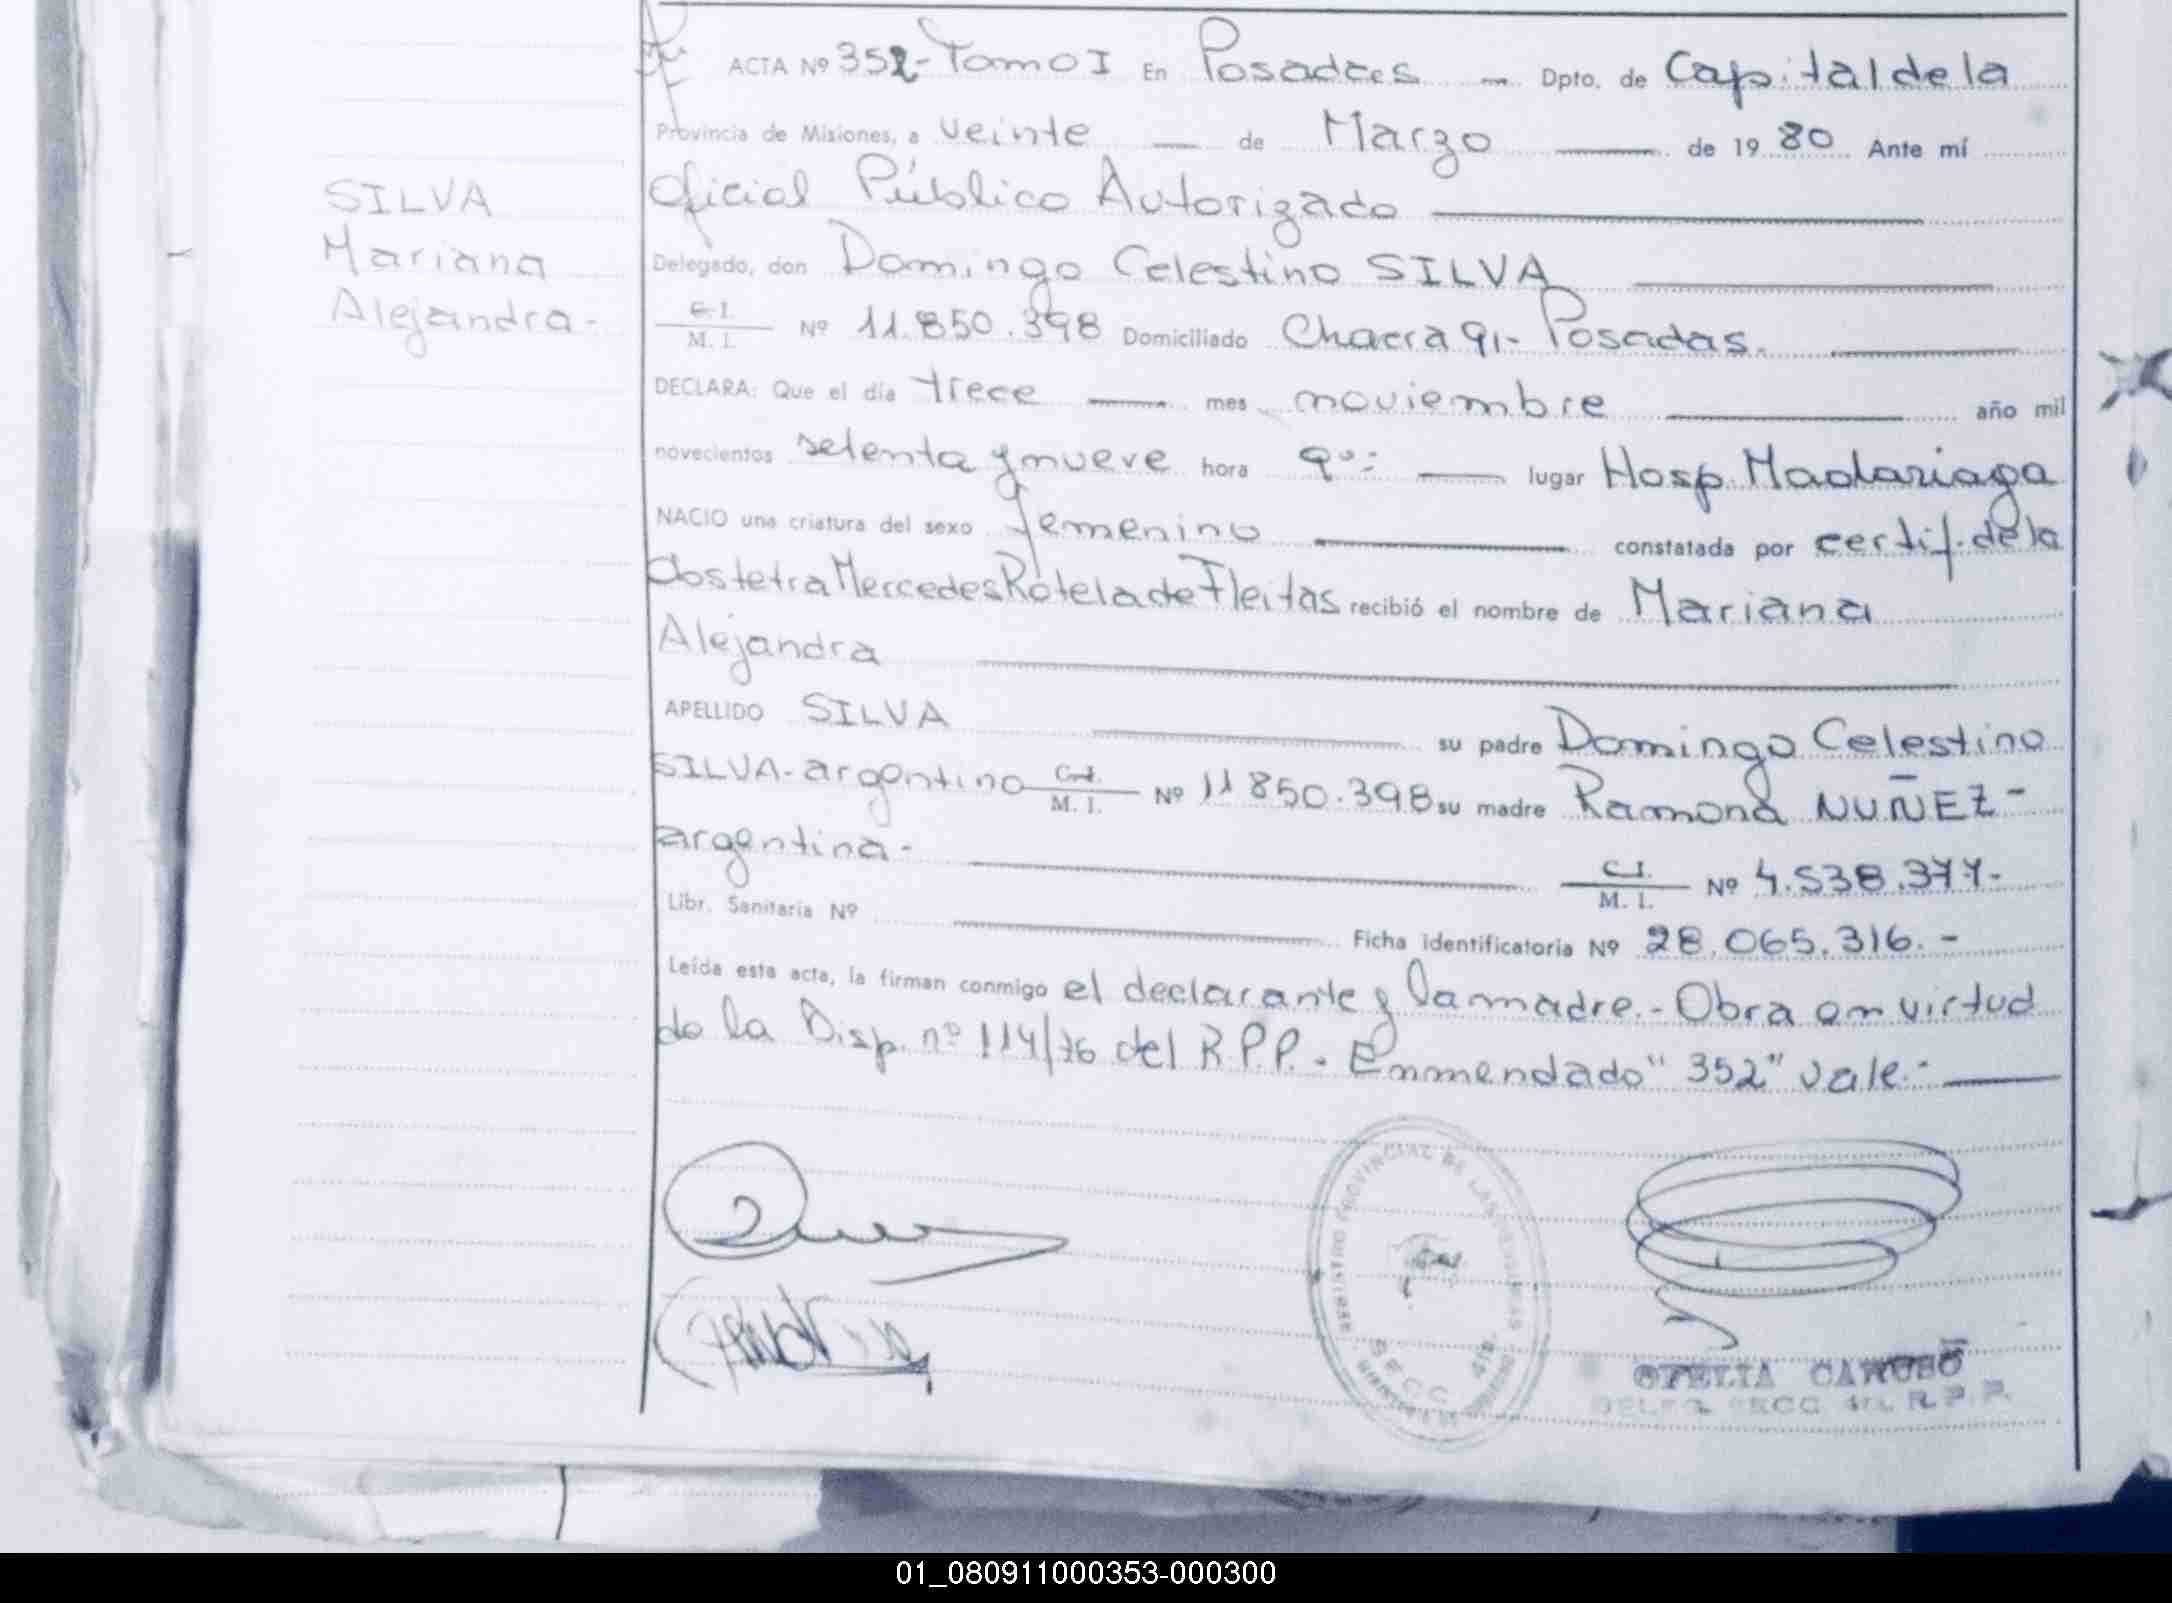 ACTA Nº 352- Tomo I En Posadas Dpto. de Capital de la
Provincia de Misiones, a veinte de Marzo de 1980 Ante mí
Oficial Público Autorizado
SILVA
Mariana
Alejandra-
Delegado, don Domingo Celestino SILVA
C.I.
M. I. Nº 11.850.398 Domiciliado Chacra 91- Posadas.
DECLARA: Que el día trece mes noviembre año mil
novecientos setenta y nueve hora 9 lugar Hosp. Madariaga
NACIO una criatura del sexo femenino constatada por certif. de la
Obstetra Mercedes Rotela de Fleitas recibió el nombre de Mariana
Alejandra
APELLIDO SILVA su padre Domingo Celestino
SILVA- argentino M. I. Nº 11.850.398 su madre Ramona NUÑEZ-
argentina- C.I. M. I. Nº 4.538.377-
Libr. Sanitaria Nº Ficha identificatoria Nº 28.065.316.-
Leída esta acta, la firman conmigo el declarante y la madre.- Obra en virtud
de la Disp. nº 114/76 del R.P.P.- Enmendado "352" vale.-
REGISTRO PROVINCIAL DE LAS
SECC. 4ta.
OFELIA CARUSO
SECC. 4ta. R.P.P.
01_080911000353-000300